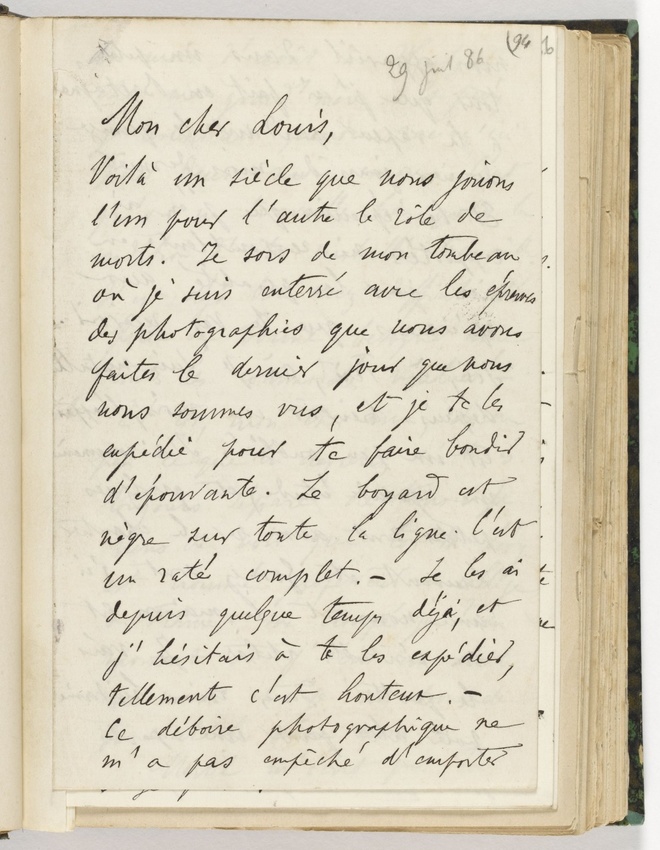 29 juil 86
94
Mon cher Louis,
Voilà un siècle que nous jouons
l'un pour l'autre le rôle de
morts. Je sors de mon tombeau
où je suis enterré avec les épreuves
des photographies que nous avons
faites le dernier jour que nous
nous sommes vus, et je te les
expédie pour te faire bondir
d'épouvante. Le boyard est
nègre sur toute la ligne. C'est
un raté complet. – Je les ai
depuis quelque temps déjà, et
j'hésitais à te les expédier,
tellement c'est honteux. –
Ce déboire photographique ne
m'a pas empêché d'emporter